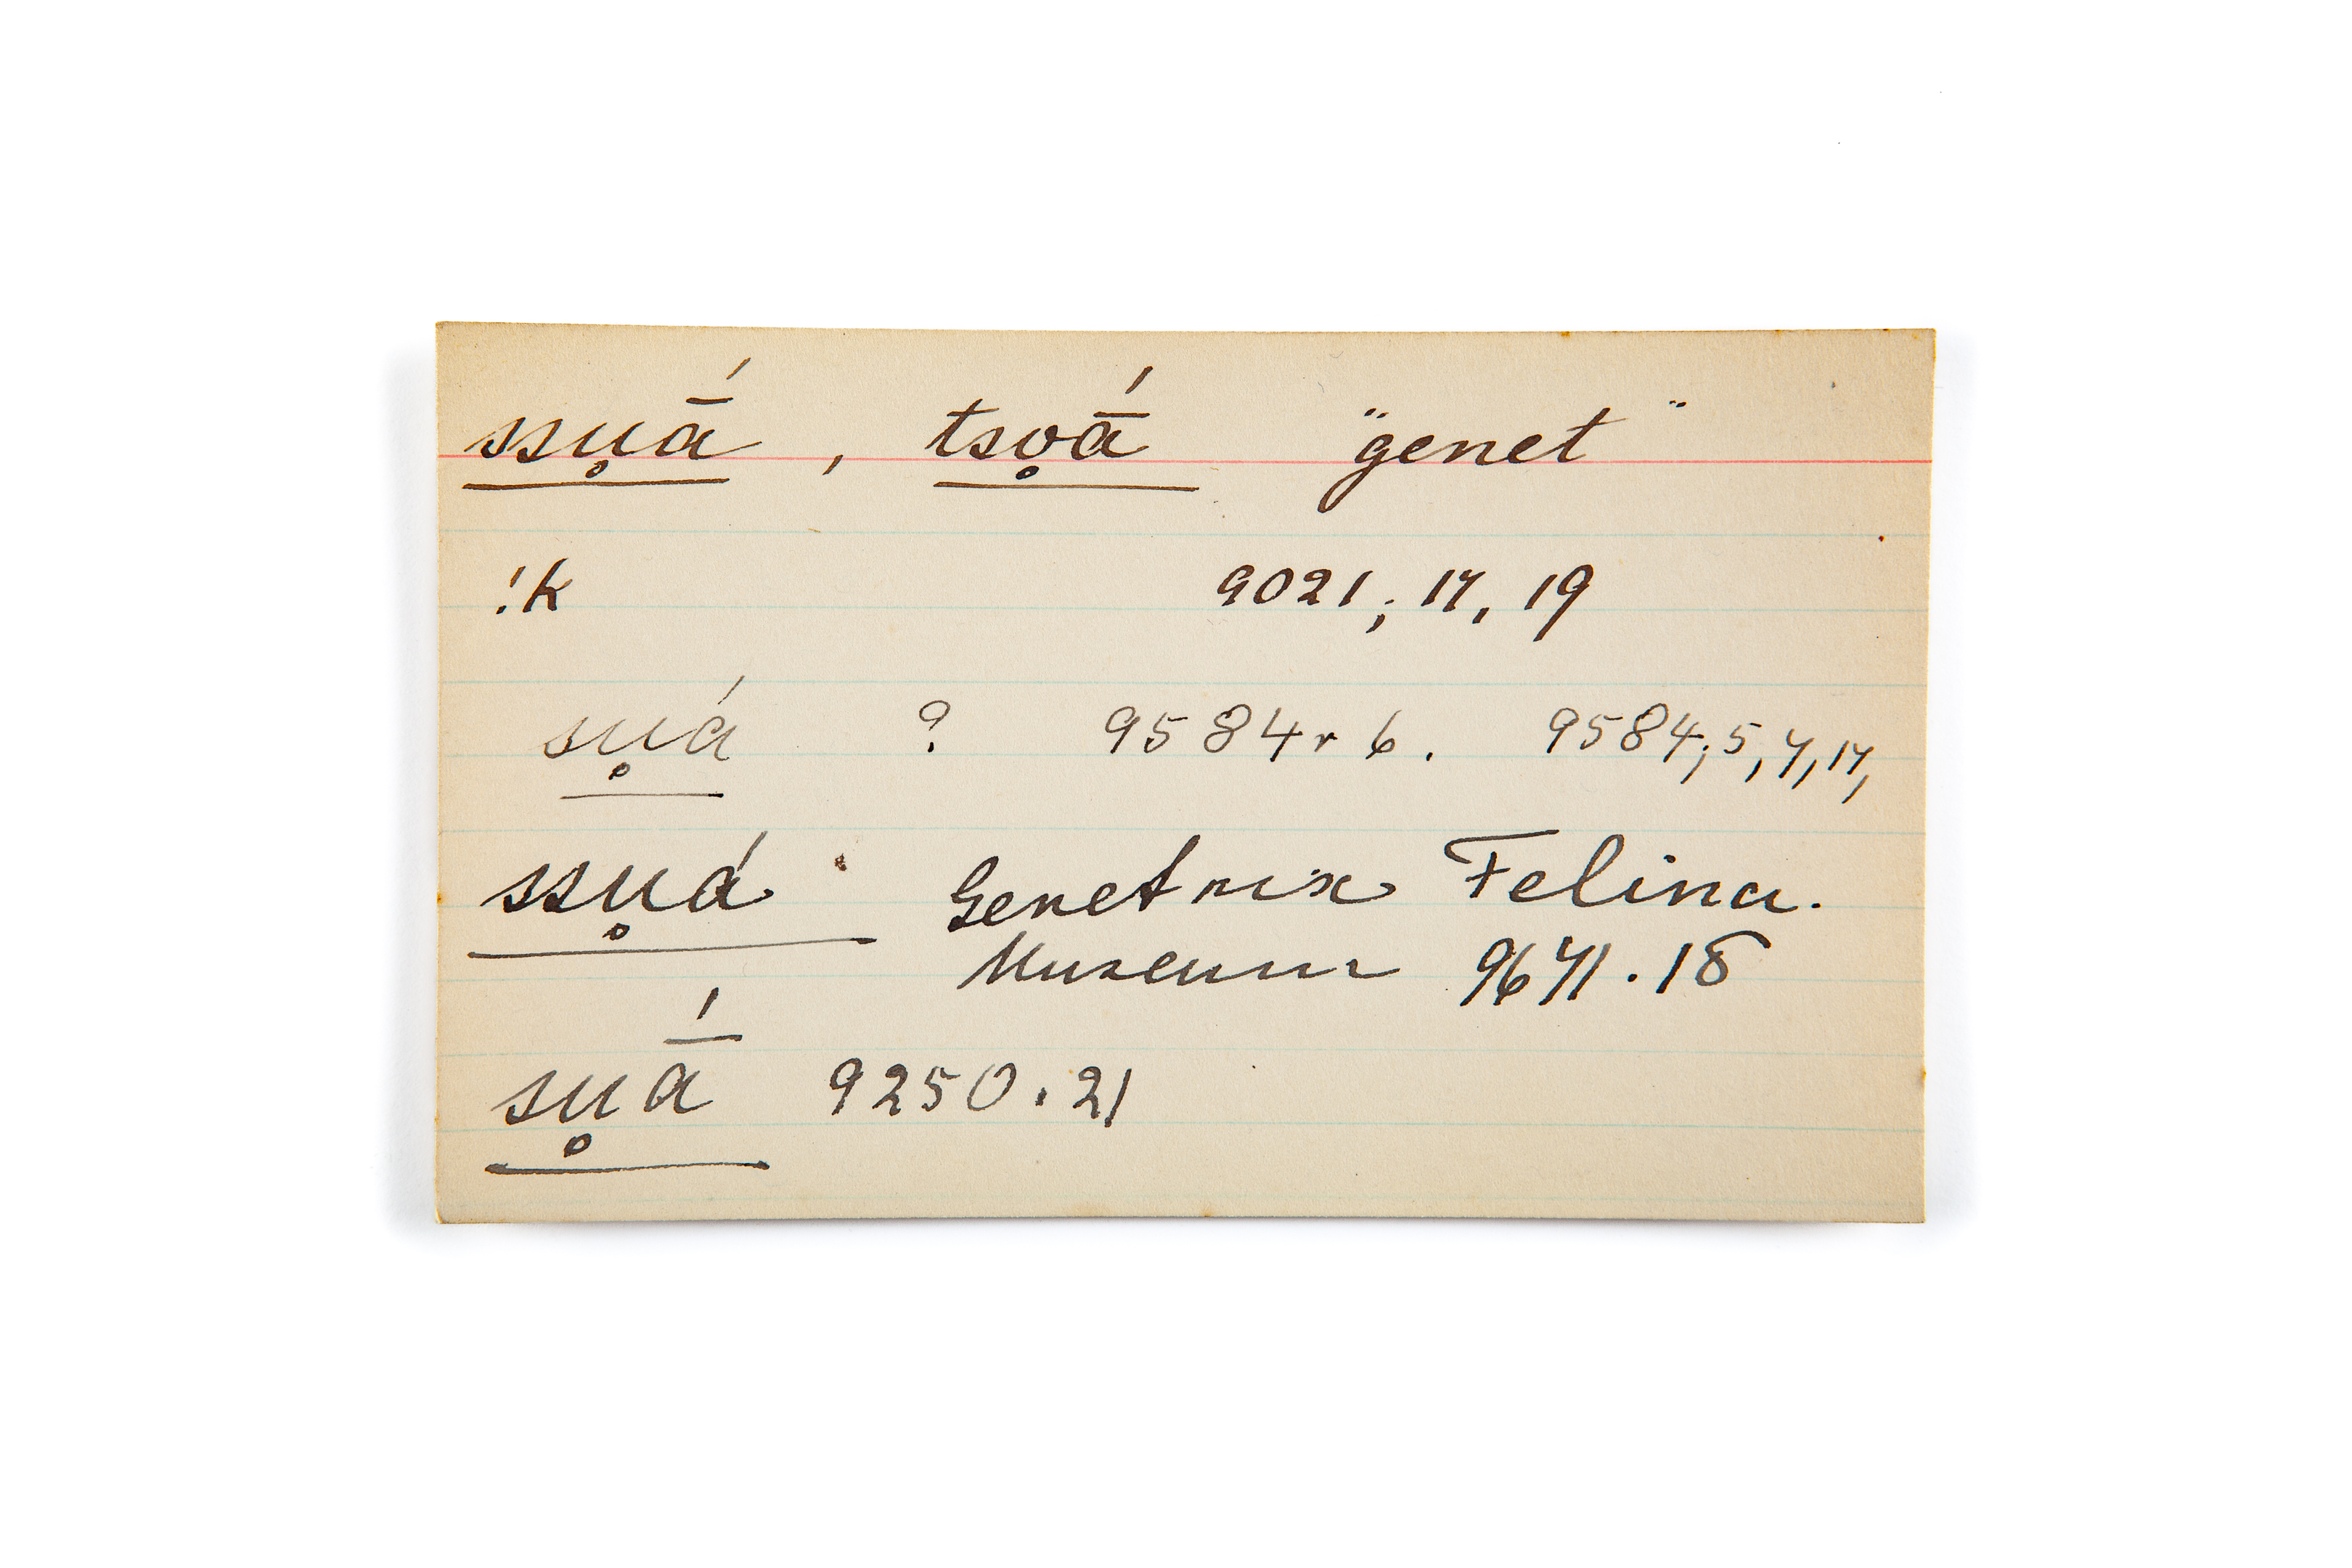 ssu̥ā́, tso̥ā́ "genet"
!k 9021; 17, 19
su̥á ? 9584 r 6. 9584; 5, 7, 17,
ssu̥á Genetrix Felina.
Museum 9671. 18
su̥ā́ 9250. 21